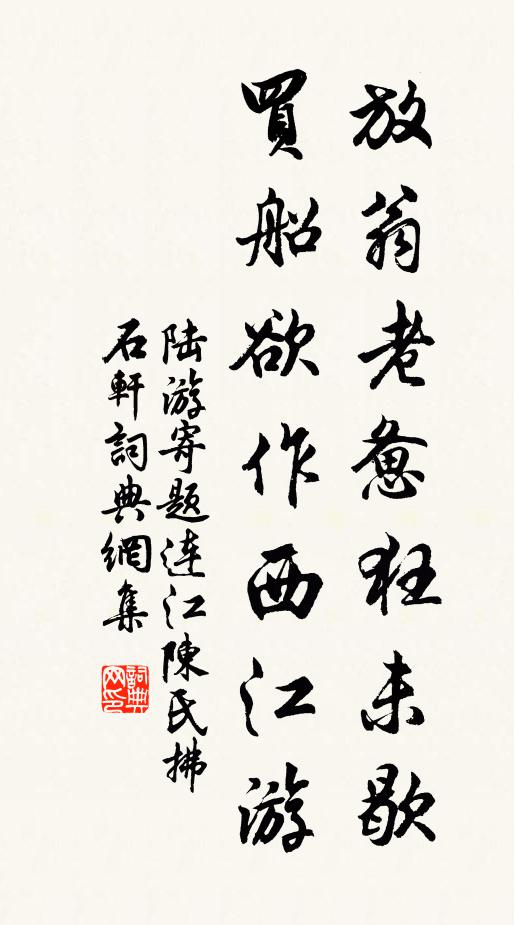 放翁老惫狂未歇
買船欲作西江游
陆游寄题连江陳氏拂
石軒詞典網集
詞典網印